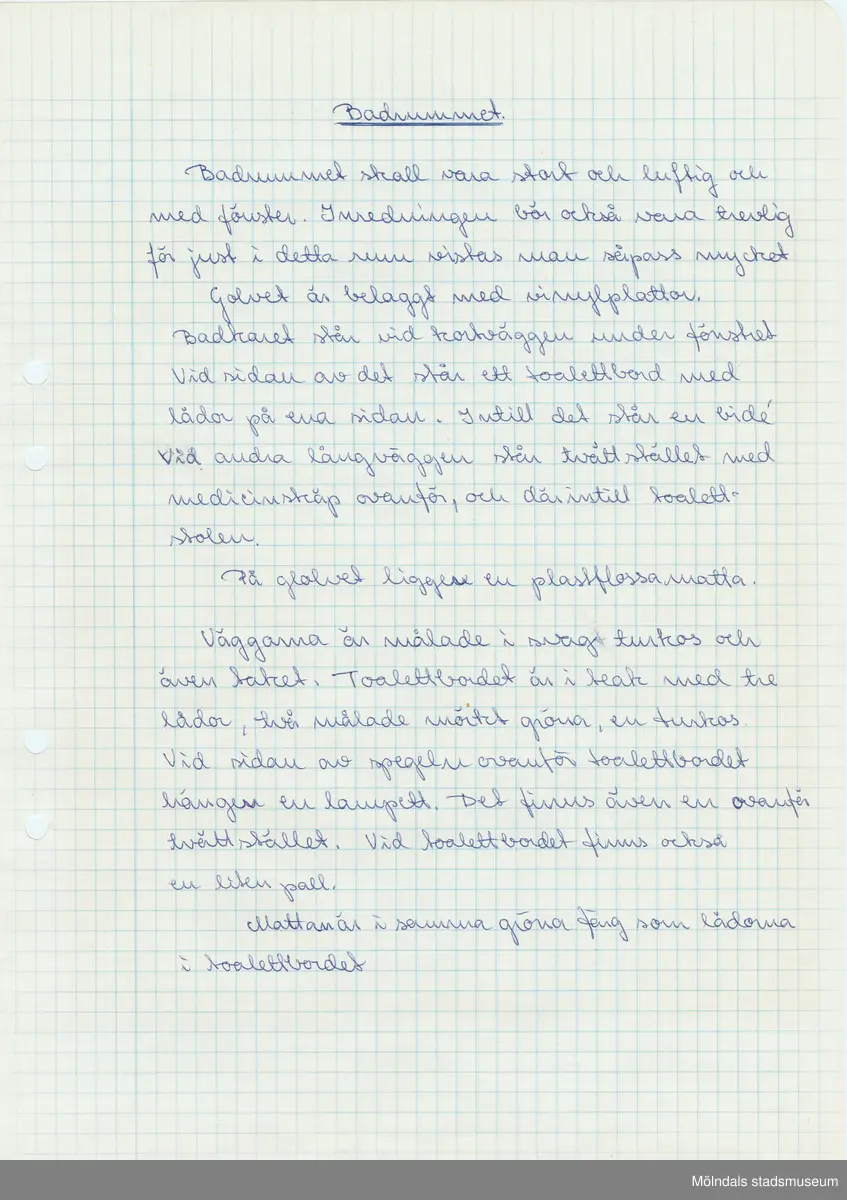 Badrummet.
Badrummet skall vara stort och luftig och
med fönster. Inredningen bör också vara trevlig
för just i detta rum vistas man såpass mycket
Golvet är belaggt med vinylplattor.
Badkaret står vid kortväggen under fönstret
Vid sidan av det står ett toalettbord med
lådor på ena sidan. Intill det står en bidé
Vid andra långväggen står tvättstället med
medicinskåp ovanför, och därintill toalett-
stolen.
På glolvet ligger en plastflossamatta.
Väggarna är målade i svagt turkos och
även taket. Toalettbordet är i teak med tre
lådor, två målade mörkt gröna, en turkos.
Vid sidan av spegeln ovanför toalettbordet
hänger en lampett. Det finns även en ovanför
tvättstället. Vid toalettbordet finns också
en liten pall.
Mattan är i samma gröna färg som lådorna
i toalettbordet
Mölndals stadsmuseum